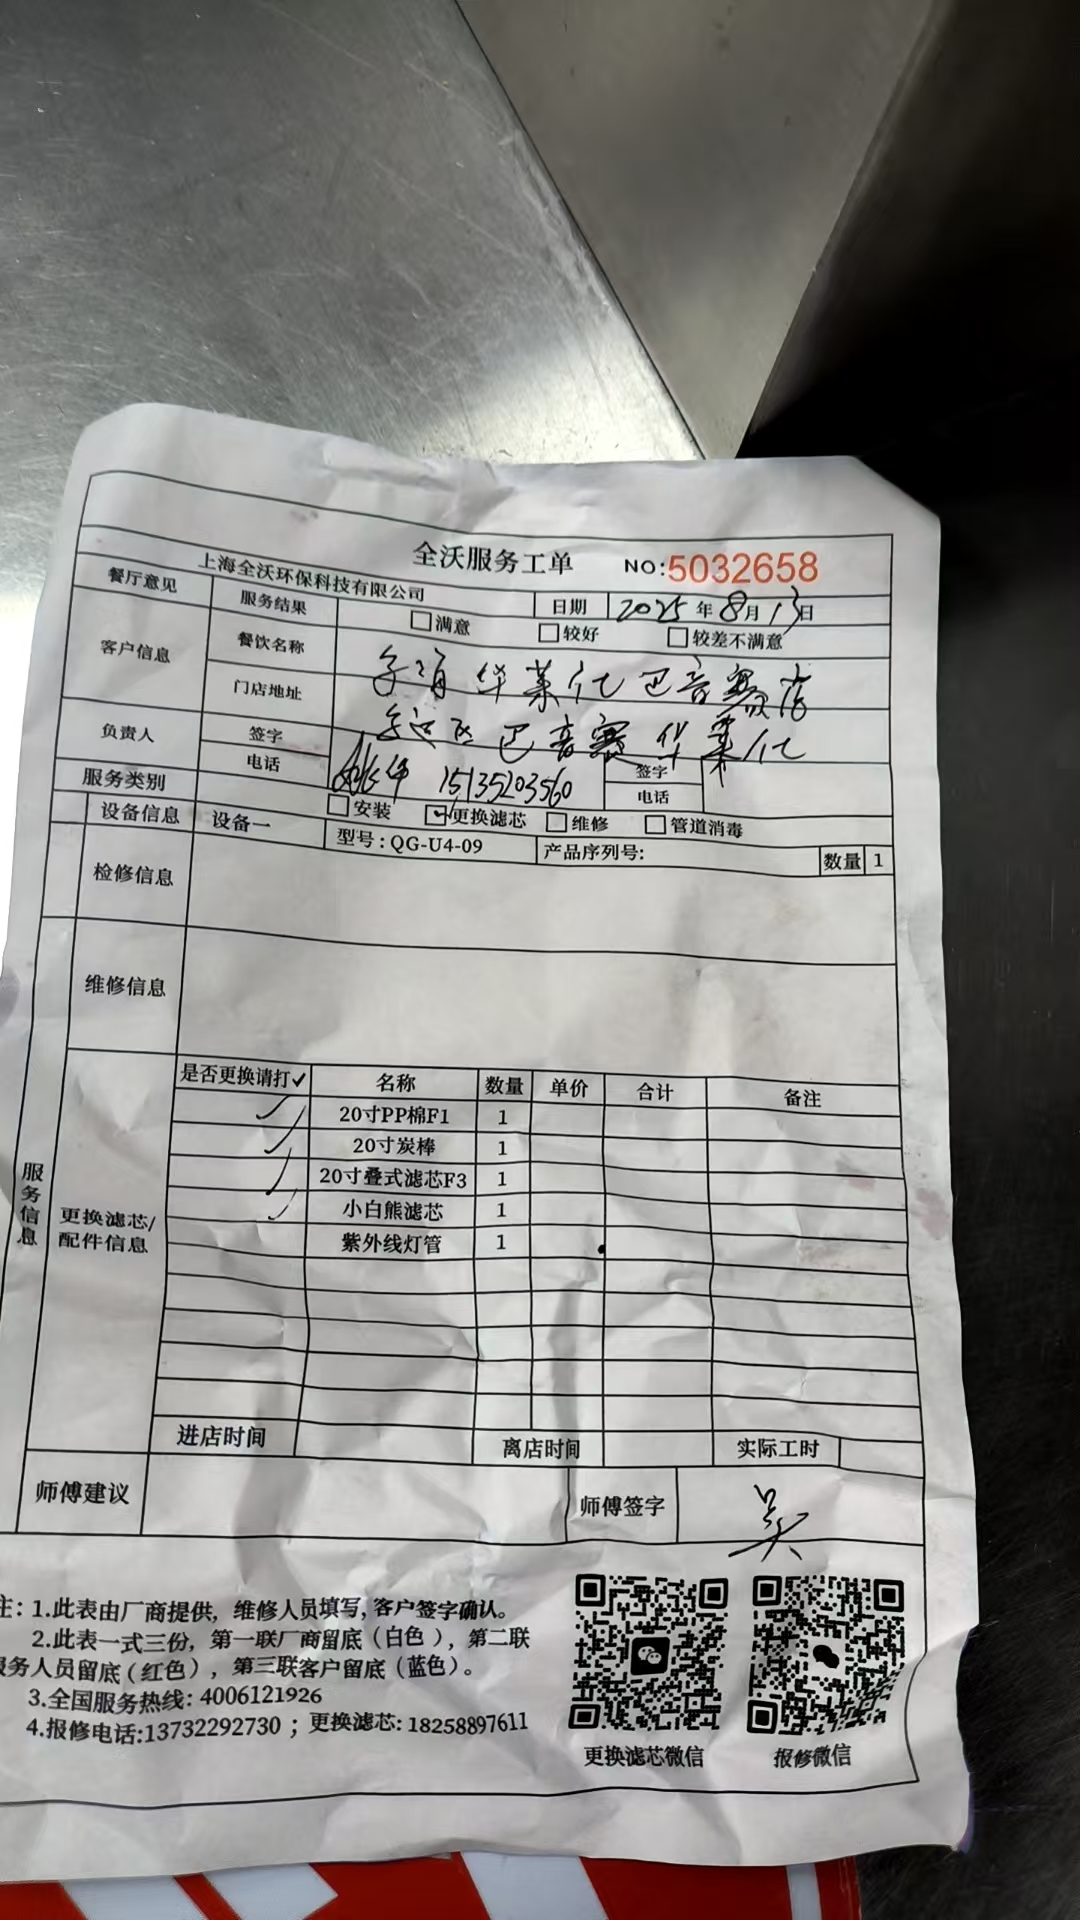 全沃服务工单 NO:5032658
上海全沃环保科技有限公司 日期 2025年8月13日
餐厅意见 服务结果 满意 较好 较差不满意
客户信息 餐饮名称 华莱仕巴音赛店
门店地址 巴音赛华莱仕
负责人 签字 签字
电话 15135203560 电话
服务类别 安装 更换滤芯 维修 管道消毒
设备信息 设备一 型号:QG-U4-09 产品序列号: 数量 1
检修信息
维修信息
服务信息
更换滤芯/配件信息
是否更换请打✓ 名称 数量 单价 合计 备注
✓ 20寸PP棉F1 1
✓ 20寸炭棒 1
✓ 20寸叠式滤芯F3 1
✓ 小白熊滤芯 1
紫外线灯管 1
进店时间 离店时间 实际工时
师傅建议 师傅签字 吴
注：1.此表由厂商提供，维修人员填写，客户签字确认。
2.此表一式三份，第一联厂商留底（白色），第二联
服务人员留底（红色），第三联客户留底（蓝色）。
3.全国服务热线：4006121926
4.报修电话:13732292730；更换滤芯:18258897611
更换滤芯微信 报修微信